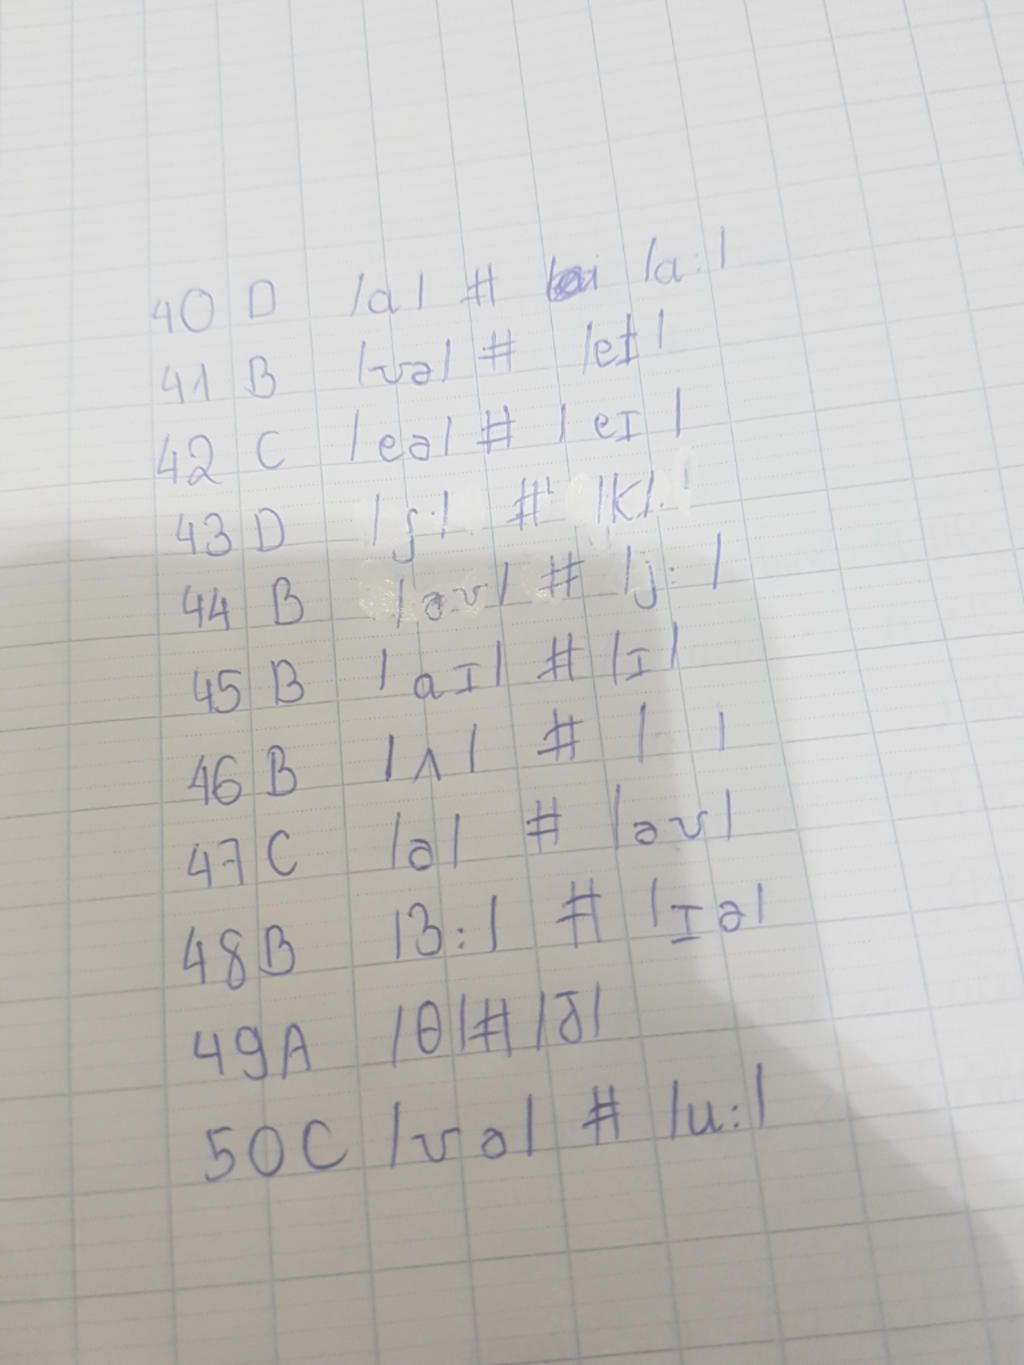 40 D /a/ # /a:/
41 B /ʊə/ # /eɪ/
42 C /eə/ # /eɪ/
43 D /ʃ/ # /k/
44 B /əʊ/ # /ɔ:/
45 B /aɪ/ # /ɪ/
46 B /ʌ/ # / /
47 C /ə/ # /əʊ/
48 B /3:/ # /ɪə/
49 A /θ/ # /ð/
50 C /ʊə/ # /u:/